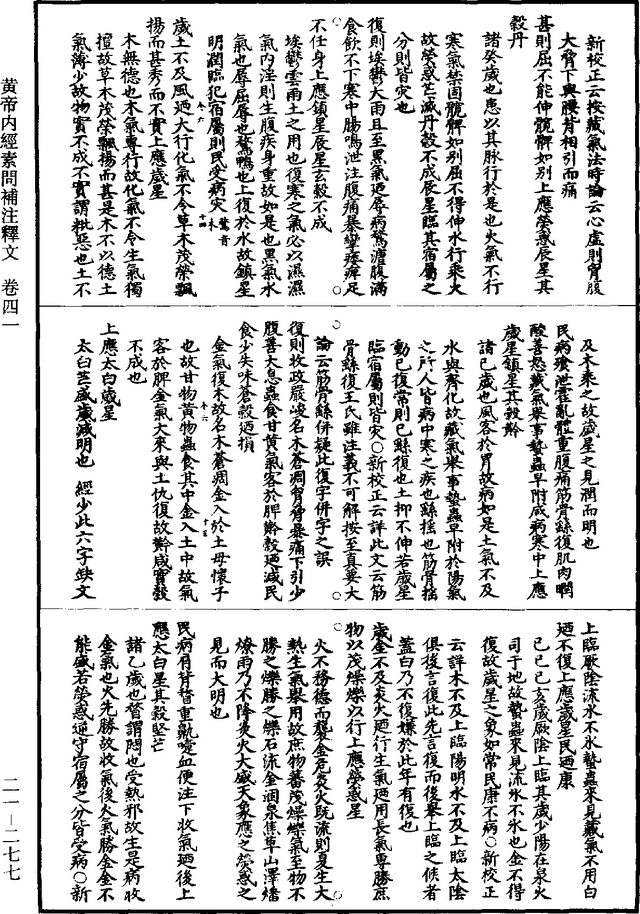 黃帝內經素問補注釋文　卷四一
新校正云按藏氣法時論云心虛則胷腹
大脅下與腰背相引而痛
甚則屈不能伸髖髀如別上應熒惑辰星其
穀丹
諸癸歲也患以其脉行於是也火氣不行
寒氣禁固髖髀如別屈不得伸水行乘火
故熒惑芒减丹穀不成辰星臨其宿屬之
分則皆灾也
復則埃鬱大雨且至黑氣迺辱病騖溏腹滿
食飲不下寒中腸鳴泄注腹痛暴攣痿痺足
不任身上應鎮星辰星玄穀不成
埃鬱雲雨土之用也復寒之氣必以濕濕
氣內淫則生腹疾身重故如是也黑氣水
氣也辱屈辱也騖鴨也上復於水故鎮星
明潤臨犯宿屬則民受病灾　騖音木
歲土不及風迺大行化氣不令草木茂榮飄
揚而甚秀而不實上應歲星
木無德也木氣專行故化氣不令生氣獨
擅故草木茂榮飄揚而甚是木不以德土
氣薄少故物實不成不實謂粃惡也土不
及木乘之故歲星之見潤而明也
民病飧泄霍亂體重腹痛筋骨繇復肌肉瞤
酸善怒藏氣舉事蟄蟲早附咸病寒中上應
歲星鎮星其穀黅
諸巳歲也風客於胃故病如是土氣不及
水與齊化故藏氣舉事蟄蟲早附於陽氣
之所人皆病中寒之疾也繇搖也筋骨搖
動已復常則已繇復也土抑不伸若歲星
臨宿屬則皆灾○新校正云詳此文云筋
骨繇復王氏雖注義不可解按至真要大
論云筋骨繇併疑此復字併字之誤
復則收政嚴峻名木蒼凋胷脅暴痛下引少
腹善大息蟲食甘黃氣客於脾黅穀迺減民
食少失味蒼穀迺損
金氣復木故名木蒼凋金入於土母懷子
也故甘物黃物蟲食其中金入土中故氣
客於脾金氣大來與土仇復故黅咸實穀
不成也
上應太白歲星
太白芒盛歲减明也　經少此六字缺文
上臨厥陰流水不冰蟄蟲來見藏氣不用白
迺不復上應歲星民迺康
己巳己亥歲厥陰上臨其歲少陽在泉火
司于地故蟄蟲來見流水不冰也金不得
復故歲星之象如常民康不病○新校正
云詳木不及上臨陽明水不及上臨太陰
俱後言復此先言復而後舉上臨之候者
蓋白乃不復嫌於此年有復也
歲金不及炎火迺行生氣迺用長氣專勝庶
物以茂燥爍以行上應熒惑星
火不務德而襲金危炎火既流則夏生大
熱生氣舉用故庶物蕃茂燥爍氣至物不
勝之爍勝之爍石流金涸泉焦草山澤燔
燎雨乃不降炎火大盛天象應之熒惑之
見而大明也
民病肩背瞀重鼽嚏血便注下收氣迺後上
應太白星其穀堅芒
諸乙歲也瞀謂悶也受熱邪故生是病收
金氣也火先勝故收氣後火氣勝金金不
能盛若熒惑逆守宿屬之分皆受病○新
二一－二七七